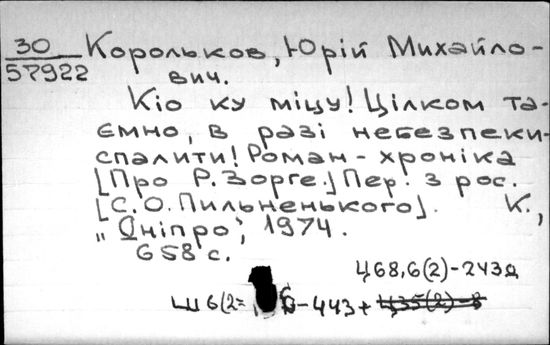 30
57922
Корольков, Юрій Михайло-
вич.
Кіо ку міцу! Цілком та-
ємно, в разі небезпеки-
спалити! Роман-хроніка
[Про Р. Зорге.] Пер. з рос.
[С. О. Пильненького]. К.,
„Дніпро", 1974.
658 с.
Ц68,6(2)-243д
Ш6(2= -443+ Ц35(2)-8